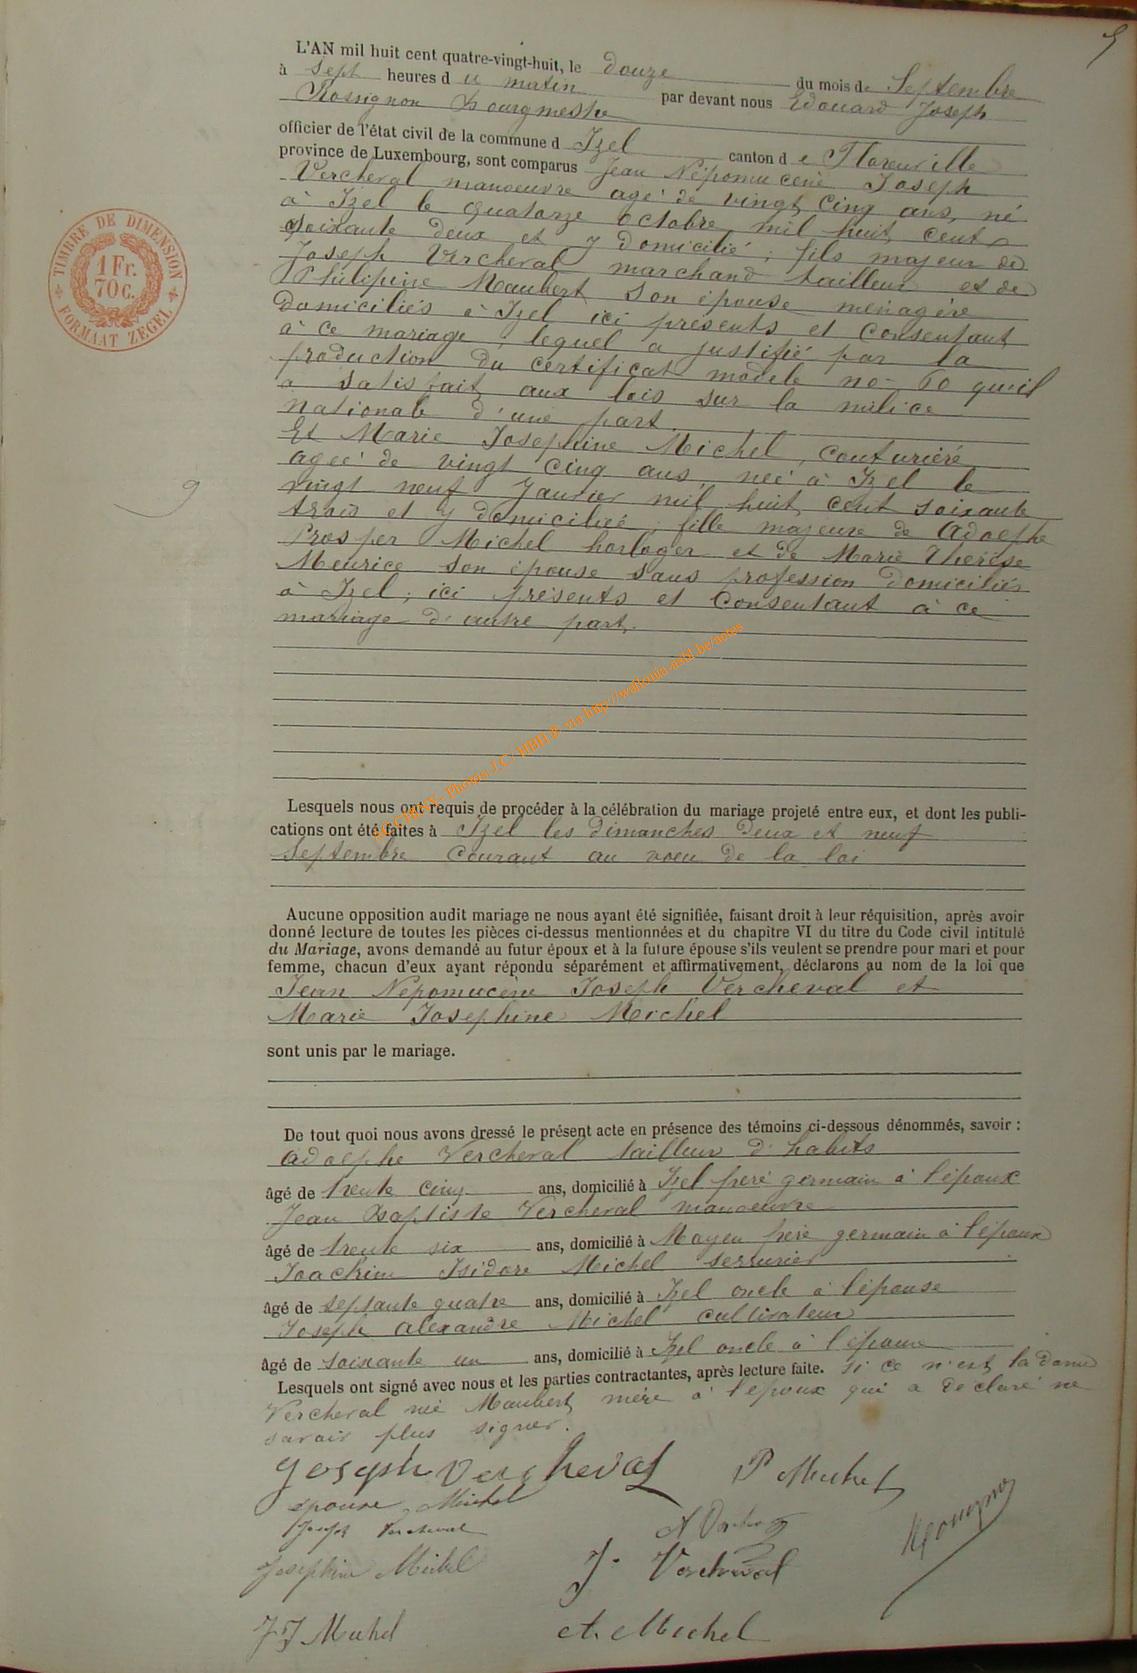 5
L'AN mil huit cent quatre-vingt-huit, le douze du mois de Septembre
à Sept heures du matin par devant nous Edouard Joseph
Rossignon Bourgmestre
officier de l'état civil de la commune d Izel canton de Florenville
province de Luxembourg, sont comparus Jean Népomucène Joseph
Vercheval manoeuvre agé de vingt cinq ans, né
à Izel le quatorze octobre mil huit cent
soixante deux et y domicilié, fils majeur de
Joseph Vercheval marchand tailleur et de
Philipine Maubert son épouse ménagère
domiciliés à Izel ici présents et consentant
à ce mariage, lequel a justifié par la
production du certificat modèle no 60 qu'il
a satisfait aux lois sur la milice
nationale d'une part.
Et Marie Josephine Michel, couturière
agée de vingt cinq ans, née à Izel le
vingt neuf Janvier mil huit cent soixante
trois et y domiciliée, fille majeure de Adolphe
Prosper Michel horloger et de Marie Thérèse
Meurice son épouse sans profession domiciliés
à Izel, ici présents et consentant à ce
mariage d'autre part.
TIMBRE DE DIMENSION
1 Fr.
70 c.
FORMAAT ZEGEL
9
via http://wallonia-asbl.be/actes
Lesquels nous ont requis de procéder à la célébration du mariage projeté entre eux, et dont les publi-
cations ont été faites à Izel les dimanches deux et neuf
Septembre courant au voeu de la loi
Aucune opposition audit mariage ne nous ayant été signifiée, faisant droit à leur réquisition, après avoir
donné lecture de toutes les pièces ci-dessus mentionnées et du chapitre VI du titre du Code civil intitulé
du Mariage, avons demandé au futur époux et à la future épouse s'ils veulent se prendre pour mari et pour
femme, chacun d'eux ayant répondu séparément et affirmativement, déclarons au nom de la loi que
Jean Népomucène Joseph Vercheval et
Marie Josephine Michel
sont unis par le mariage.
De tout quoi nous avons dressé le présent acte en présence des témoins ci-dessous dénommés, savoir :
Adolphe Vercheval tailleur d'habits
âgé de trente cinq ans, domicilié à Izel frère germain à l'époux
Jean Baptiste Vercheval manoeuvre
âgé de trente six ans, domicilié à Moyen frère germain à l'époux
Joachim Isidore Michel serrurier
âgé de septante quatre ans, domicilié à Izel oncle à l'épouse
Joseph Alexandre Michel cultivateur
âgé de soixante un ans, domicilié à Izel oncle à l'épouse
Lesquels ont signé avec nous et les parties contractantes, après lecture faite. si ce n'est la dame
Vercheval née Maubert mère à l'époux qui a déclaré ne
savoir plus signer.
Joseph Vercheval P Michel
épouse Michel
Joseph Vercheval
Josephine Michel J. Vercheval
J J Michel A. Michel